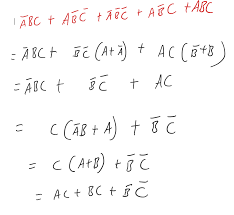 ĀBC + AB̄C̄ + ĀB̄C̄ + AB̄C + ABC
= ĀBC + B̄C̄ (A+Ā) + AC (B̄+B)
= ĀBC + B̄C̄ + AC
= C (ĀB + A) + B̄ C̄
= C (A+B) + B̄ C̄
= AC + BC + B̄ C̄